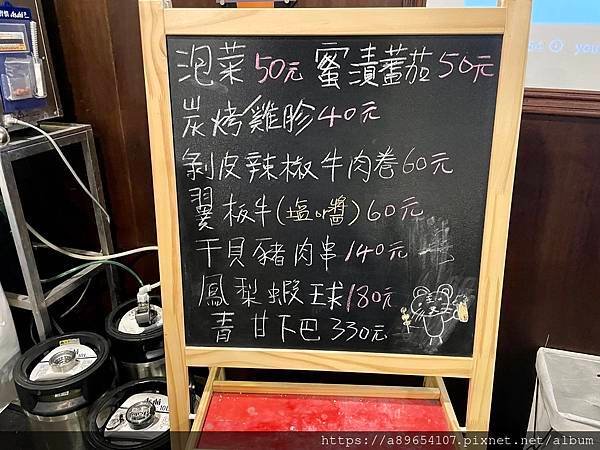 泡菜50元 蜜漬蕃茄50元
炭烤雞胗40元
剝皮辣椒牛肉卷60元
翼板牛(塩or醬)60元
干貝豬肉串140元
鳳梨蝦球180元
青甘下巴330元
Asahi
Asahi
https://a89654107.pixnet.net/album